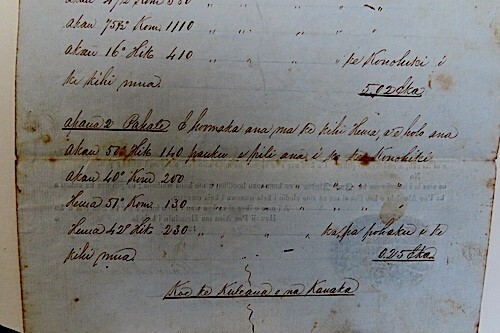 akau 75½° Kom. 1110 " " " "
akau 16° Hik 410 " " " " ke Konohiki i
ke kihi mua. 5,02 Eka
Apana 2 Pahale E hoomaka ana ma ke kihi Hema, a e holo ana
akau 50° Hik 140 pauku e pili ana i ko ke Konohiki
akau 40° Kom 200 " " " "
Hema 57° Kom. 130 " " " "
Hema 42° Hik 230 " " " ka pa pohaku i ke
kihi mua. 0.25 Eka.
Koe ke Kuleana o na Kanaka